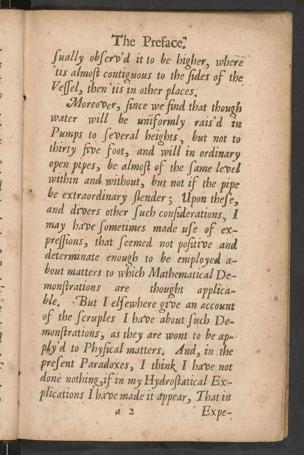 The Preface.
ſually obſerv'd it to be higher, where
'tis almoſt contiguous to the ſides of the
Veſſel, then 'tis in other places.
Moreover, ſince we find that though
water will be uniformly rais'd in
Pumps to ſeveral heights, but not to
thirty five foot, and will in ordinary
open pipes, be almoſt of the ſame level
within and without, but not if the pipe
be extraordinary ſlender; Upon theſe,
and divers other ſuch conſiderations, I
may have ſometimes made uſe of ex-
preſſions, that ſeemed not poſitive and
determinate enough to be employed a-
bout matters to which Mathematical De-
monſtrations are thought applica-
ble. But I elſewhere give an account
of the ſcruples I have about ſuch De-
monſtrations, as they are wont to be ap-
ply'd to Phyſical matters. And, in the
preſent Paradoxes, I think I have not
done nothing, if in my Hydroſtatical Ex-
plications I have made it appear, That in
a 2 Expe-